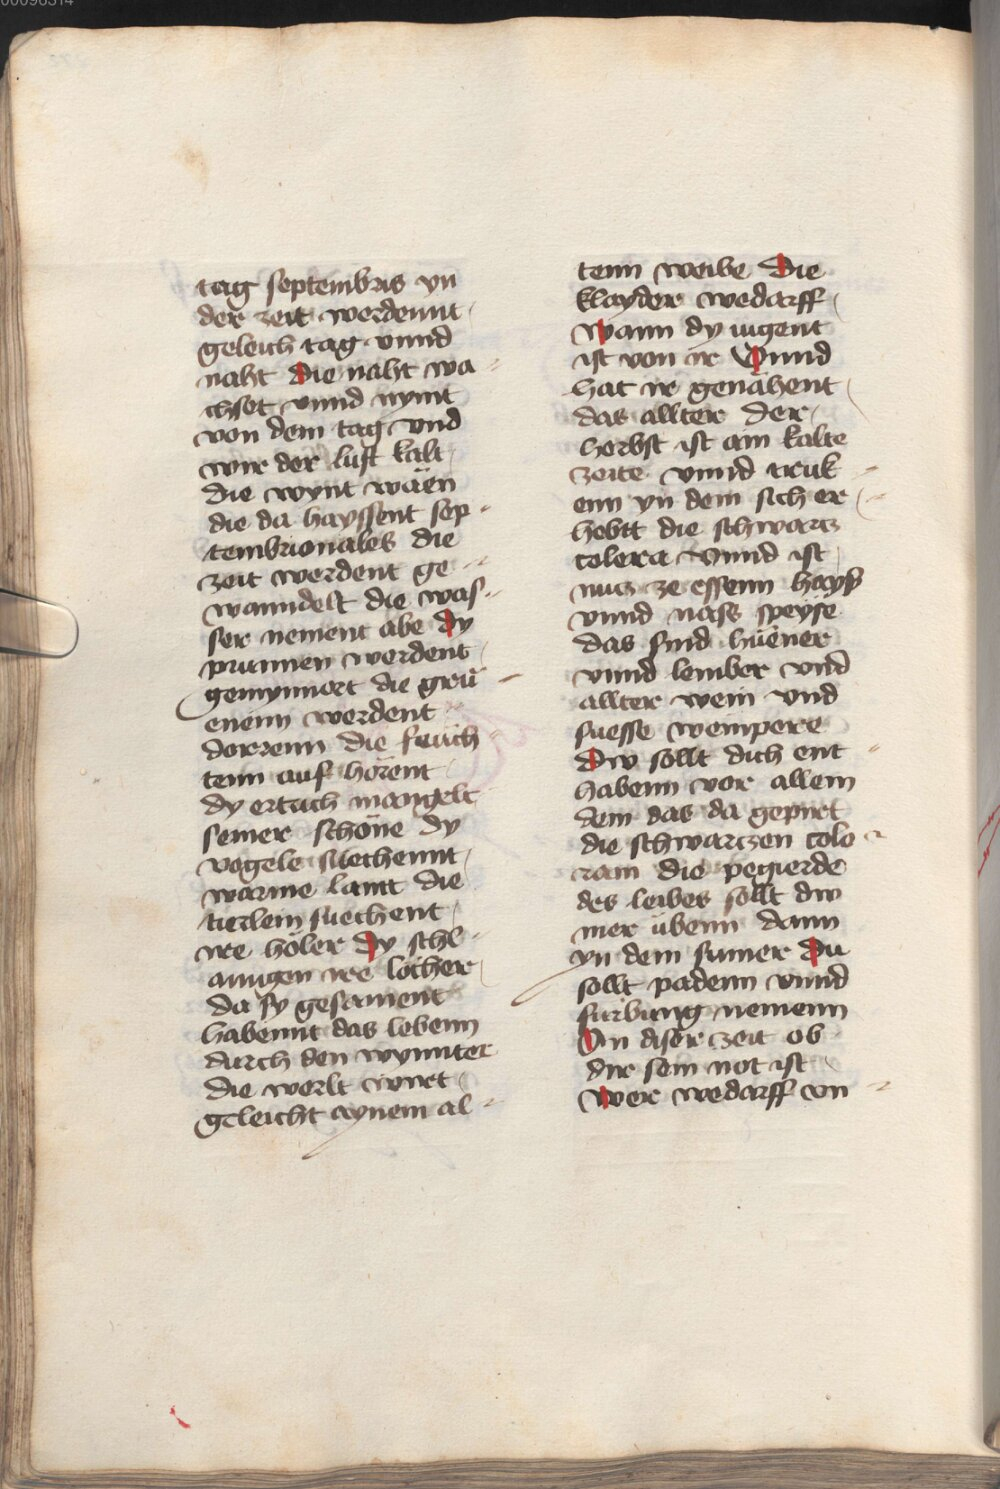 00096314
tag septembris yn
der zeit werdennt
geleich tag vnnd
naht Die naht wa
chset vnnd nymt
von dem tag vnd
wir der luft kalt
die wynt wäen
die da hayssent sep
tembrionales die
zeit werdent ge
wanndelt die was
ser nement abe Dy
prunnen werdent
gemynnort die grü
enenn werdent
dorrenn die früch
tenn auf hörent
dy ertrich mangelt
seiner schöne dy
vogele suechennt
warme lant die
tierlein suechent
ire höler Dy schl
anngen ire löcher
da sy gesament
habennt das lebenn
durch den wynnter
die werlt wirt
geleicht aynem al
tenn weibe Die
klayder wedarff
Wann dy iugent
ist von ir Vnnd
hat ir genähent
das allter der
herbst ist ain kalte
zeite vnnd truk
enn yn dem sich er
hebtt die schwartz
colera Vnnd ist
nutz ze essenn hayß
vnnd nass speyse
das sind hüener
vnnd lember vnd
allter wein vnd
suesse wempere
Dw sollt dich ent
habenn vor allem
dem das da gepirt
die schwarczen colo
ram die pegierde
des leibes sollt dw
mer übenn dann
yn dem sumer Du
sollt padenn vnnd
fürbung nemenn
In diser zeit ob
dir sein not ist
Wer wedarff von